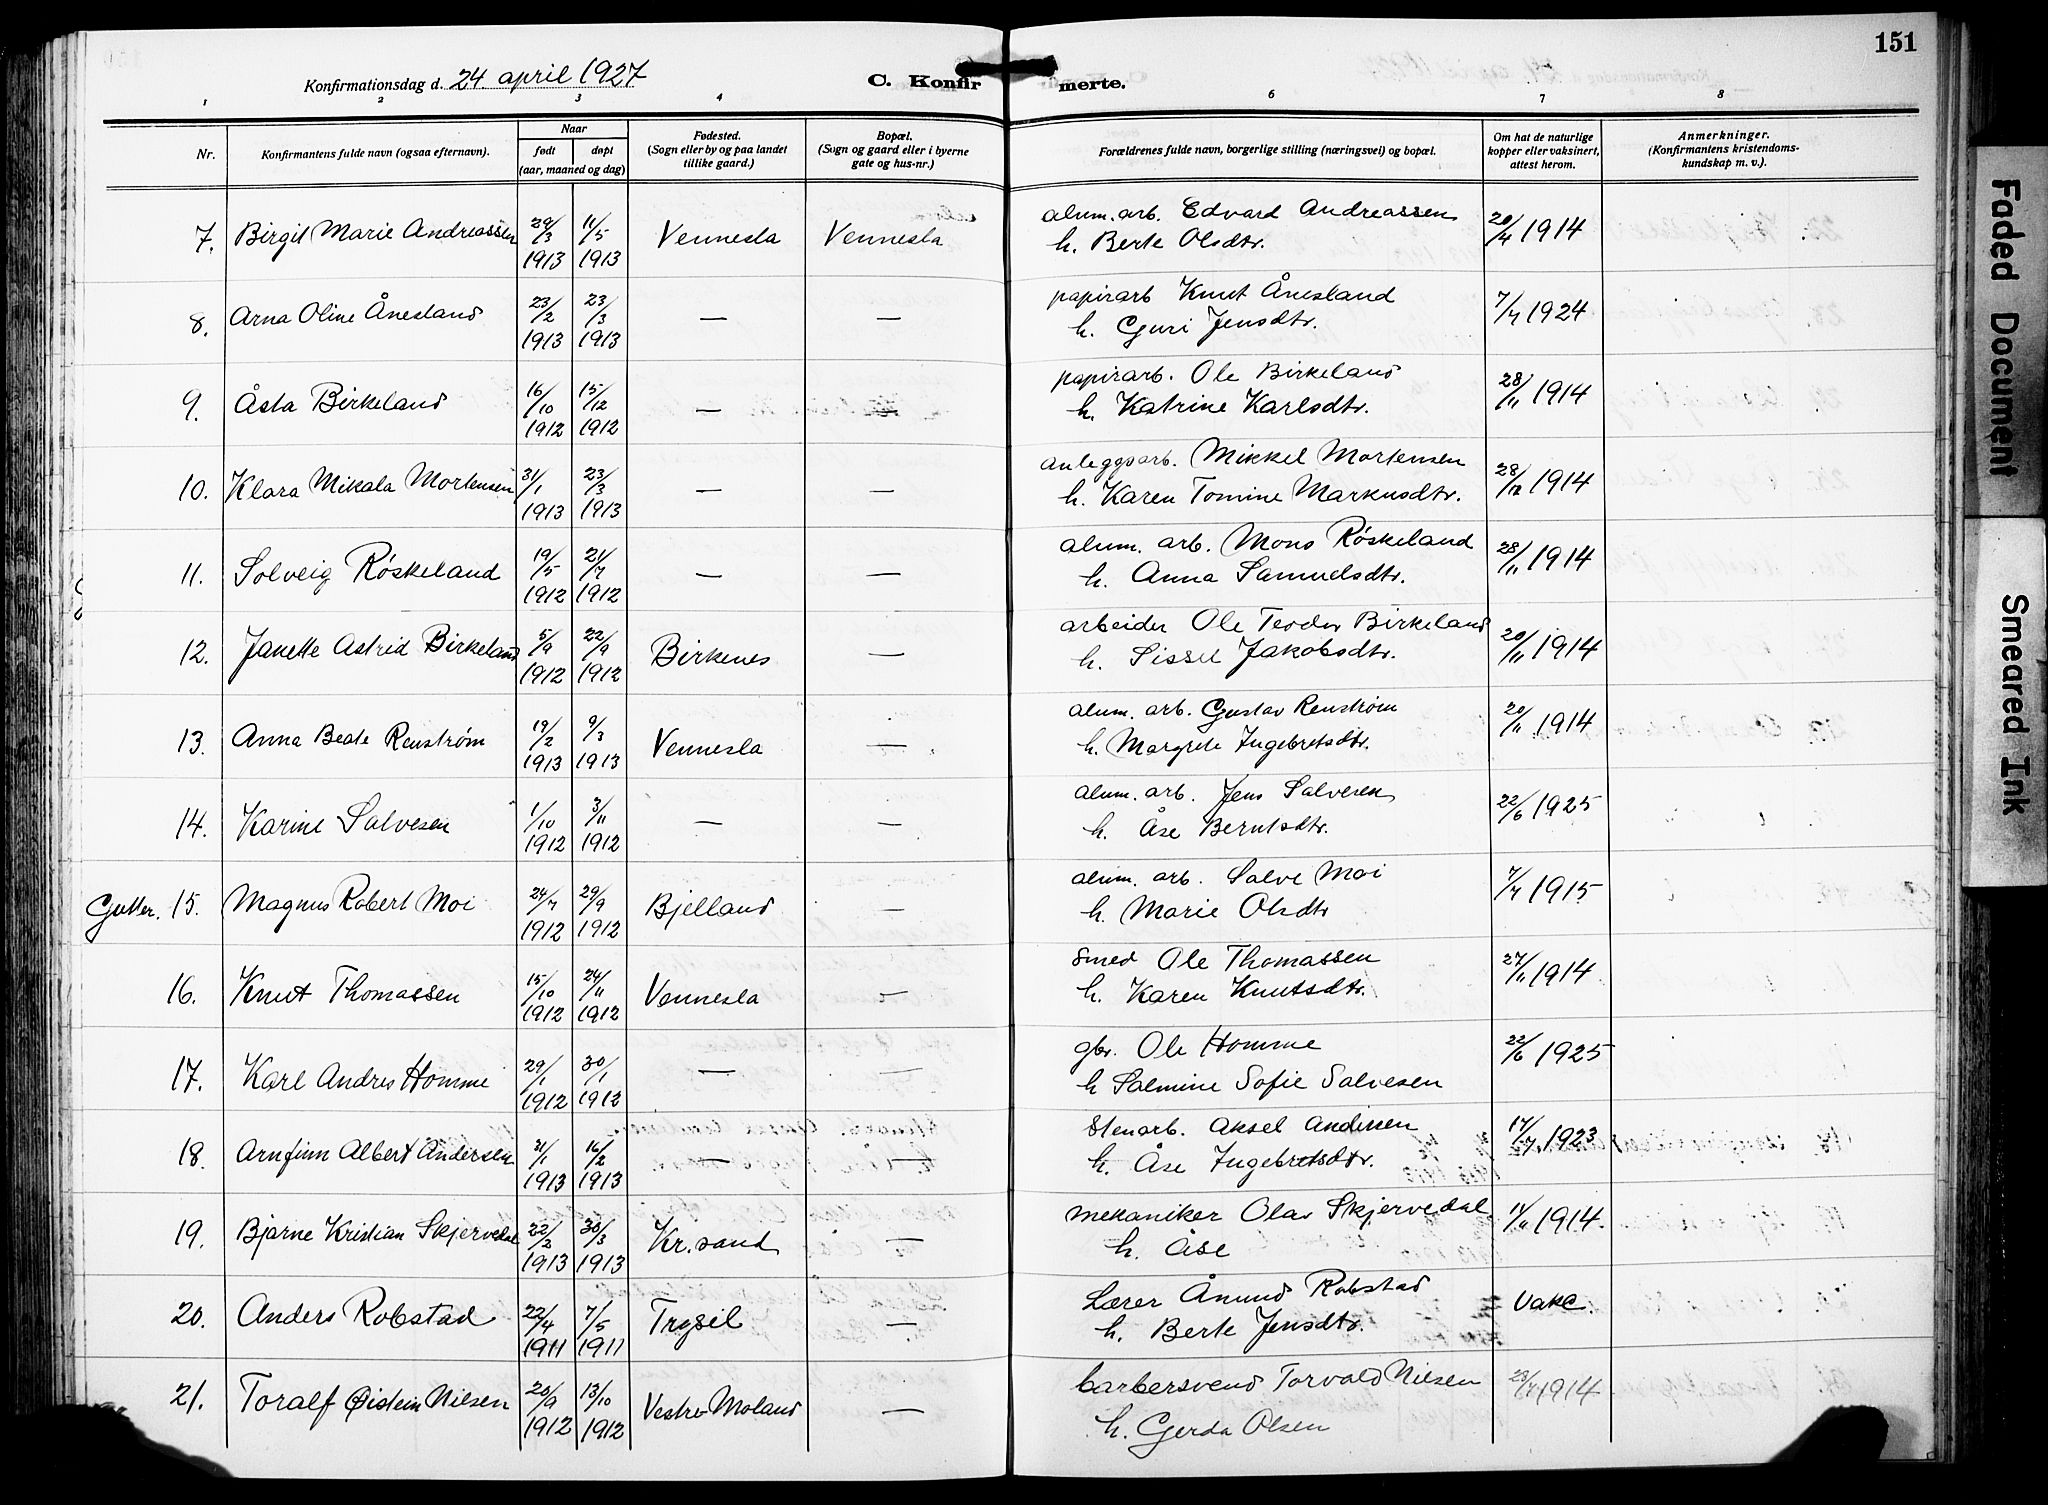 151
Konfirmationsdag d. 24. april 1927
C. Konfirmerte.
1 2 3 4 6 7 8
Nr.
Konfirmantens fulde navn (ogsaa efternavn).
Naar
født døpt
(aar, maaned og dag)
Fødested.
(Sogn eller by og paa landet
tillike gaard.)
Bopæl.
(Sogn og gaard eller i byerne
gate og hus-nr.)
Forældrenes fulde navn, borgerlige stilling (næringsvei) og bopæl.
Om hat de naturlige
kopper eller vaksinert,
attest herom.
Anmerkninger.
(Konfirmantens kristendoms-
kundskap m. v.).
7. Birgit Marie Andreassen 29/3 1913 11/5 1913 Vennesla Vennesla alum. arb. Edvard Andreassen
h. Berte Olsdtr. 20/4 1914
8. Arna Oline Ånesland 23/2 1913 23/3 1913 — — papirarb Knut Ånesland
h. Guri Jensdtr. 7/7 1924
9. Åsta Birkeland 16/10 1912 15/12 1912 — — papirarb. Ole Birkeland
h. Katrine Karlsdtr. 28/11 1914
10. Klara Mikala Mortensen 31/1 1913 23/3 1913 — — anleggsarb. Mikkel Mortensen
h. Karen Tomine Markusdtr. 28/12 1914
11. Solveig Røskeland 19/5 1912 21/7 1912 — — alum. arb. Mons Røskeland
h. Anna Samuelsdtr. 28/11 1914
12. Janette Astrid Birkeland 5/9 1912 22/9 1912 Birkenes — arbeider Ole Teodor Birkeland
h. Sissel Jakobsdtr. 20/11 1914
13. Anna Beate Renstrøm 19/2 1913 9/3 1913 Vennesla — alum. arb. Gustav Renstrøm
h. Margrete Ingebretsdtr. 20/11 1914
14. Karine Salvesen 1/10 1912 3/11 1912 — — alum. arb. Jens Salvesen
h. Åse Berntsdtr. 22/6 1925
Gutter. 15. Magnus Robert Moi 24/7 1912 29/9 1912 Bjelland — alum. arb. Salve Moi
h. Marie Olsdtr 7/7 1915
16. Knut Thomassen 15/10 1912 24/11 1912 Vennesla — Smed Ole Thomassen
h. Karen Knutsdtr. 27/11 1914
17. Karl Andres Homme 29/1 1912 30/1 1912 — — gbr. Ole Homme
h Salmine Sofie Salvesen 22/6 1925
18. Arnfinn Albert Andersen 31/1 1913 16/2 1913 — — Stenarb. Aksel Andersen
h. Åse Ingebretsdtr. 17/7 1923
19. Bjarne Kristian Skjervedal 22/2 1913 30/3 1913 Kr. sand — mekaniker Olav Skjervedal
h. Åse 14/11 1914.
20. Anders Robstad 22/4 1911 7/5 1911 Trysil — Lærer Åmund Robstad
h. Berte Jensdtr. vakc.
21. Toralf Øistein Nilsen 20/9 1912 13/10 1912 Vestre Moland — barbersvend Torvald Nilsen
h. Gerda Olsen 23/7 1914
Faded Document
Smeared Ink